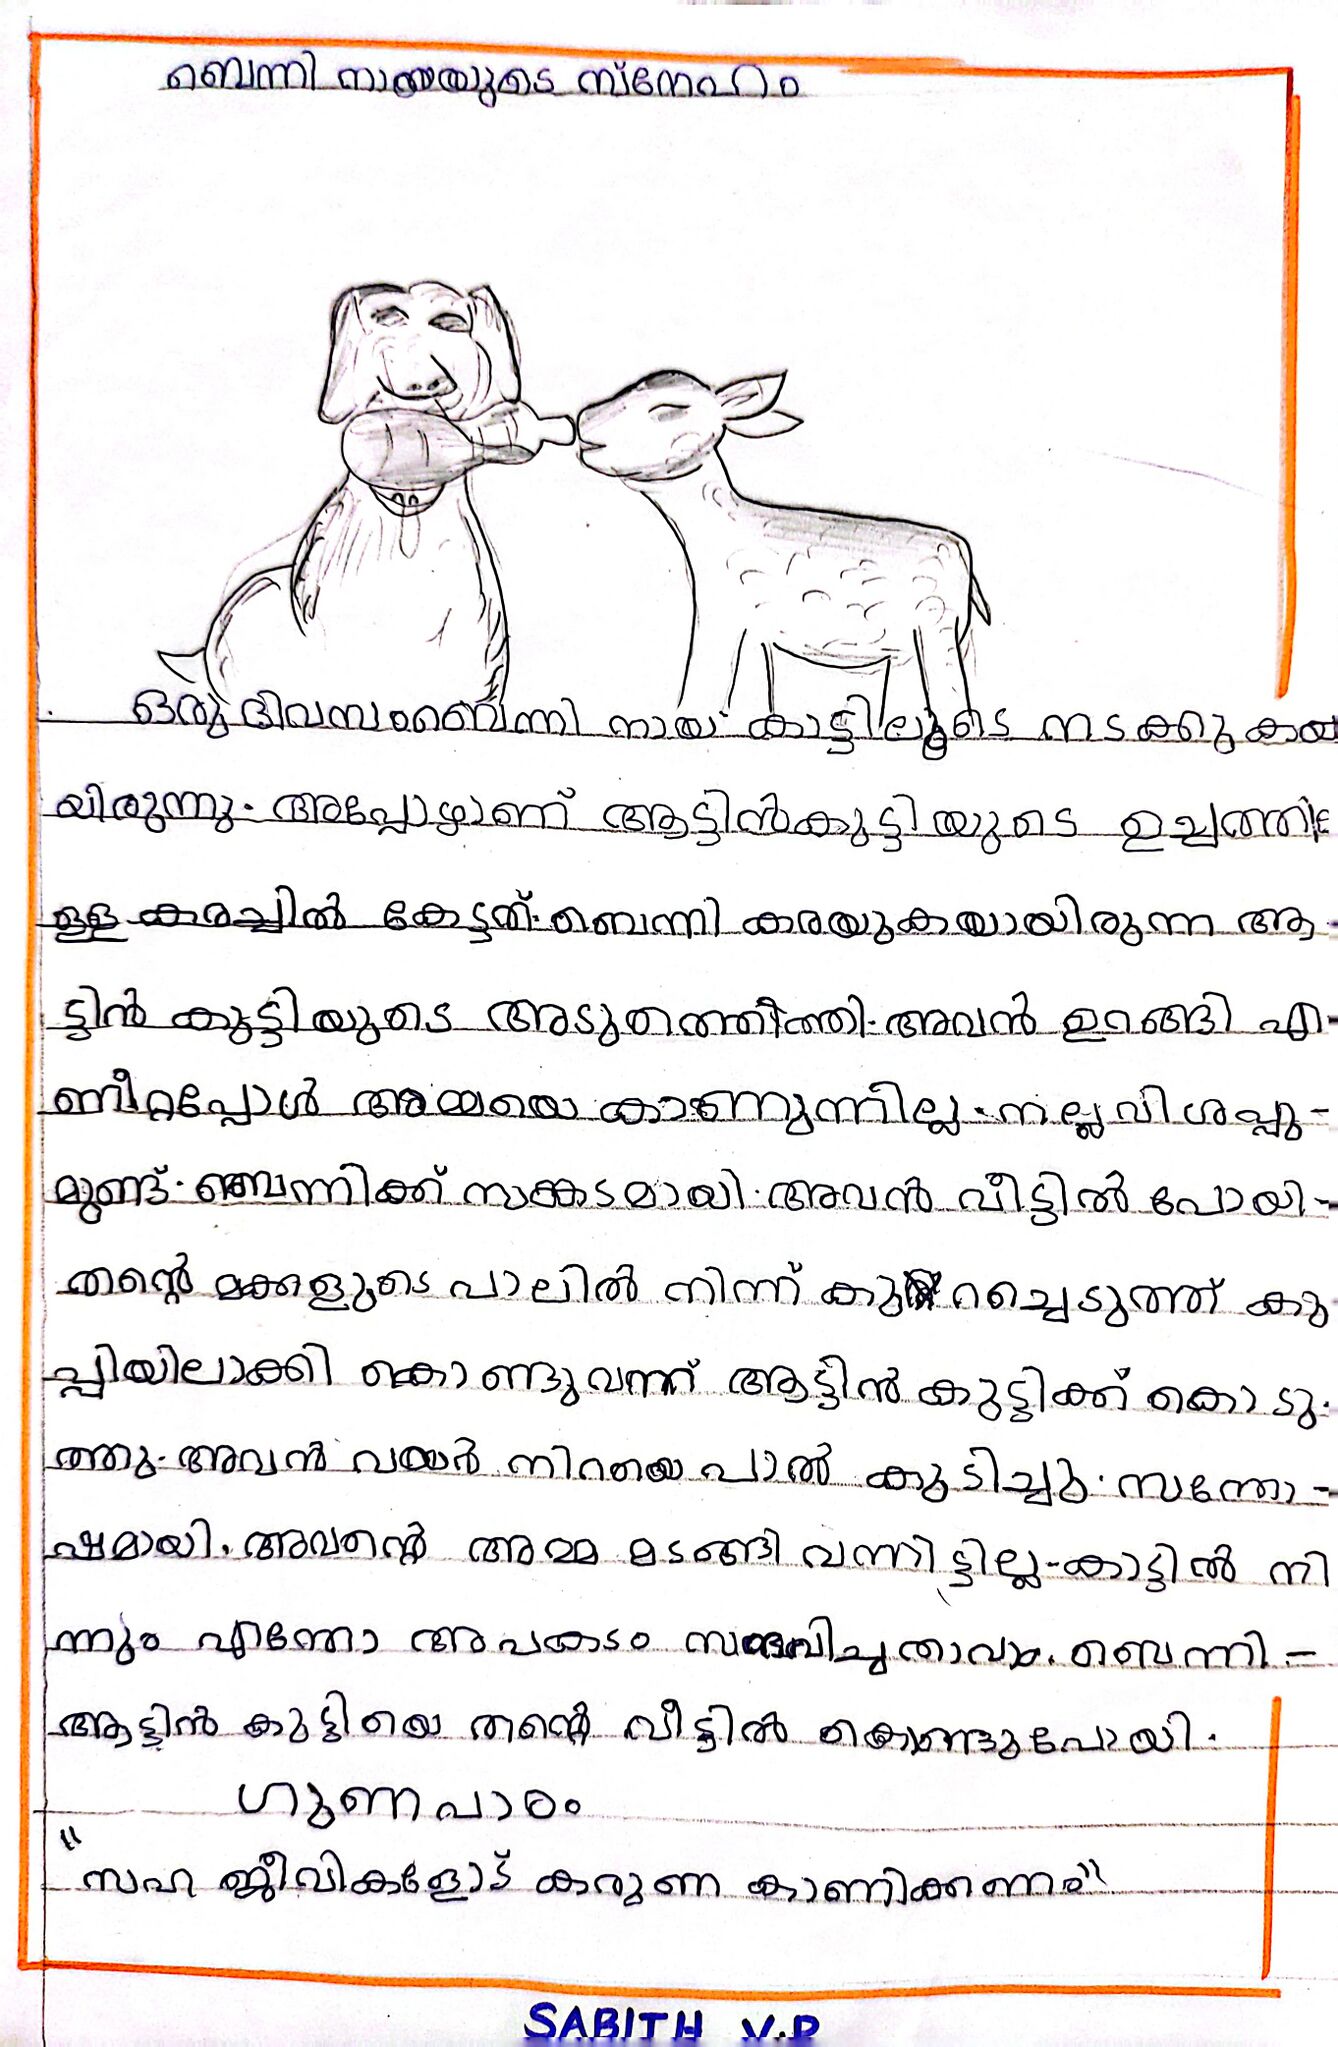 ബെന്നി നായയുടെ സ്നേഹം
ഒരു ദിവസം ബെന്നി നായ കാട്ടിലൂടെ നടക്കുകയാ
യിരുന്നു. അപ്പോഴാണ് ആട്ടിൻകുട്ടിയുടെ ഉച്ചത്തി
ള്ള കരച്ചിൽ കേട്ടത്. ബെന്നി കരയുകയായിരുന്ന ആ-
ട്ടിൻ കുട്ടിയുടെ അടുത്തെത്തി. അവൻ ഉറങ്ങി എ-
ണീറ്റപ്പോൾ അമ്മയെ കാണുന്നില്ല. നല്ല വിശപ്പു-
മുണ്ട്. ബെന്നിക്ക് സങ്കടമായി. അവൻ വീട്ടിൽ പോയി-
തന്റെ മക്കളുടെ പാലിൽ നിന്ന് കുറച്ചെടുത്ത് കു
പ്പിയിലാക്കി കൊണ്ടുവന്ന് ആട്ടിൻ കുട്ടിക്ക് കൊടു.
ത്തു. അവൻ വയർ നിറയെ പാൽ കുടിച്ചു. സന്തോ-
ഷമായി. അവന്റെ അമ്മ മടങ്ങി വന്നിട്ടില്ല-കാട്ടിൽ നി
ന്നും എന്തോ അപകടം സംഭവിച്ചതാവാം. ബെന്നി -
ആട്ടിൻ കുട്ടിയെ തന്റെ വീട്ടിൽ കൊണ്ടുപോയി.
ഗുണപാഠം
"സഹ ജീവികളോട് കരുണ കാണിക്കണം"
SABITH V.P